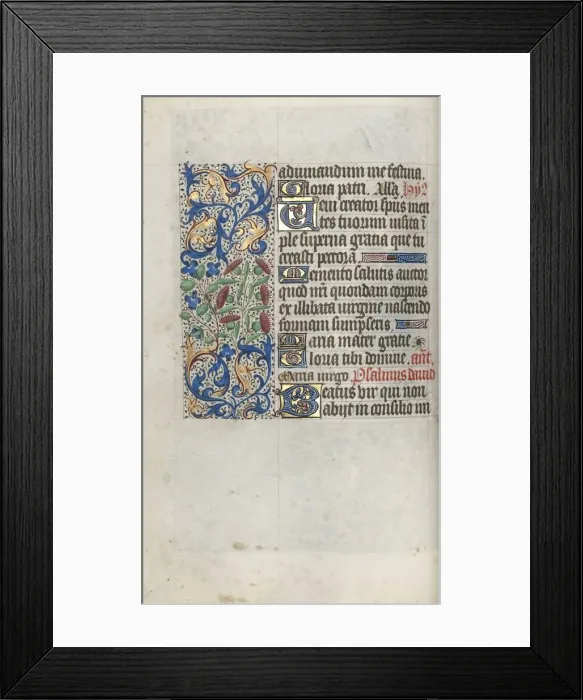 adiuuandum me festina.
Gloria patri. Alla. hy͂9
Ueni creator spūs men
tes tuorum visita ī
ple superna gratia que tu
creasti pectora.
Memento salutis auctor
quod nr̄i quondam corporis
ex illibata virgine nascendo
formam sumpseris
Maria mater gratie
Gloria tibi domine. añt.
Maria virgo Psalmus dauid
Beatus vir qui non
abijt in consilio im